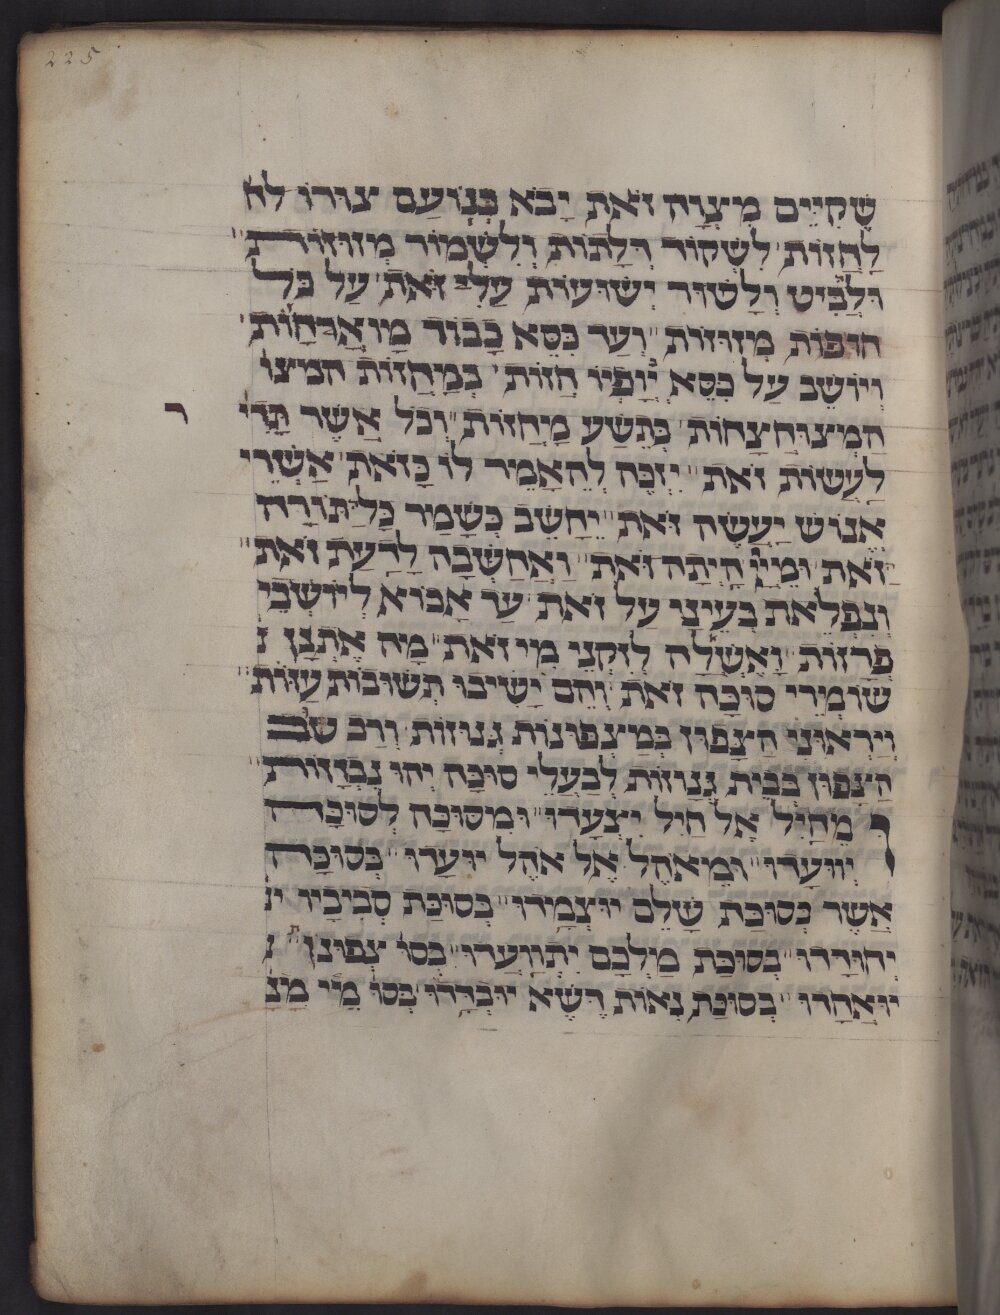 225
שְׁקִיִּים מִצְוָה זֹאת יָבֹא בְּנוֹעַם צוּרוֹ לח
לַחֲזוֹת לִשְׁקוֹד דְּלָתוֹת וְלִשְׁמוֹר מְזוּזוֹת
וּלְבִיט וְלָשׁוּר יְשׁוּעוֹת עֲלֵי זֹאת עַל כָּל
חוּפּוֹת מְזוּזוֹת וְעַד כִּסֵּא כָבוֹד
וְיוֹשֵׁב עַל כִּסֵּא יוֹפְיוֹ חֲזוֹת בְּמַחֲזוֹת המיצו
ר
הַמְצוּחְצָחוֹת בְּתֵשַׁע מַחֲזוֹת וְכֹל אֲשֶׁר
לַעֲשׂוֹת זֹאת יִזְכֶּה לְהֵאָמֵר לוֹ כָּזֹאת אַשְׁרֵי
אֱנוֹשׁ יַעֲשֶׂה זֹּאת יֵחָשֵׁב כְּשָׁמַר כָּל תּוֹרָה
זֹאת וּמַיִן הָיְתָה זֹּאת וַאֲחַשְּׁבָה לָדַעַת זֹאת
וְנִפְלֵאת בְּעֵינַי עַל זֹאת עַד אָבוֹא לְיוֹשְׁבֵי
פְרָזוֹת וְאֶשְׁלַח לְזִקְנֵי מִי זֹאת מָה אֶתְּנַן נ
שׁוֹמְרֵי סוּכָּה זֹאת וְהֵם יָשִׁיבוּ תְשׁוּבוֹת עַזּוֹת
וְיַרְאוּנִי הַצָּפוּן בְּמַצְפּוּנוֹת גְּנוּזוֹת וְרַב טוּב
הַצָּפוּן בְּבֵית גְּנָזוֹת לְבַעֲלֵי סוּכָּה יְהוּ נִבְזָזוֹת
מֵחַיִל אֶל חַיִל יִצְעָדוּ וּמִסּוּכָּה לְסוּכָּה
יִוָּעָדוּ וּמֵאֹהֶל אֶל אֹהֶל יוּעָדוּ בְּסוּכָּה
אֲשֶׁר בְּסוּכַּת שָׁלֵם יוּצְמָדוּ בְּסוּכַּת סְבִיבָיו ינ
יְחוּדָּדוּ בְּסוּכַּת מַלְכָּם יִתְוַועֲדוּ בְּסוֹ צְפוּנָן נ
יוּאֲחָדוּ בְּסוּכַּת נְאוֹת דֶּשֶׁא יוּבְדָּדוּ בְּסוֹ מֵי מְנ